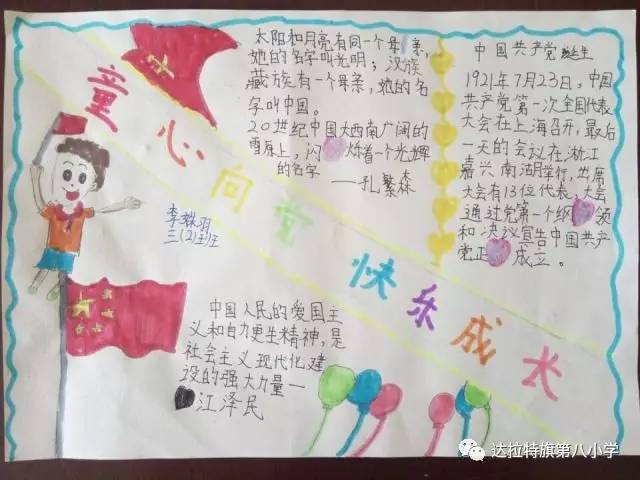 童心向党 快乐成长
太阳和月亮有同一个母亲,
她的名字叫光明;汉族
藏族有一个母亲,她的名
字叫中国。
20世纪中国大西南广阔的
雪原上,闪烁着一个光辉
的名字
——孔繁森
中国共产党诞生
1921年7月23日,中国
共产党第一次全国代表
大会在上海召开,最后
一天的会议在浙江
嘉兴南湖举行,共展
大会有13位代表、大会
通过党第一个纲领
和决议宣告中国共产
党正成立。
三(2)班
中国人民的爱国主
义和自力更生精神,是
社会主义现代化建
设的强大力量—
江泽民
达拉特旗第八小学